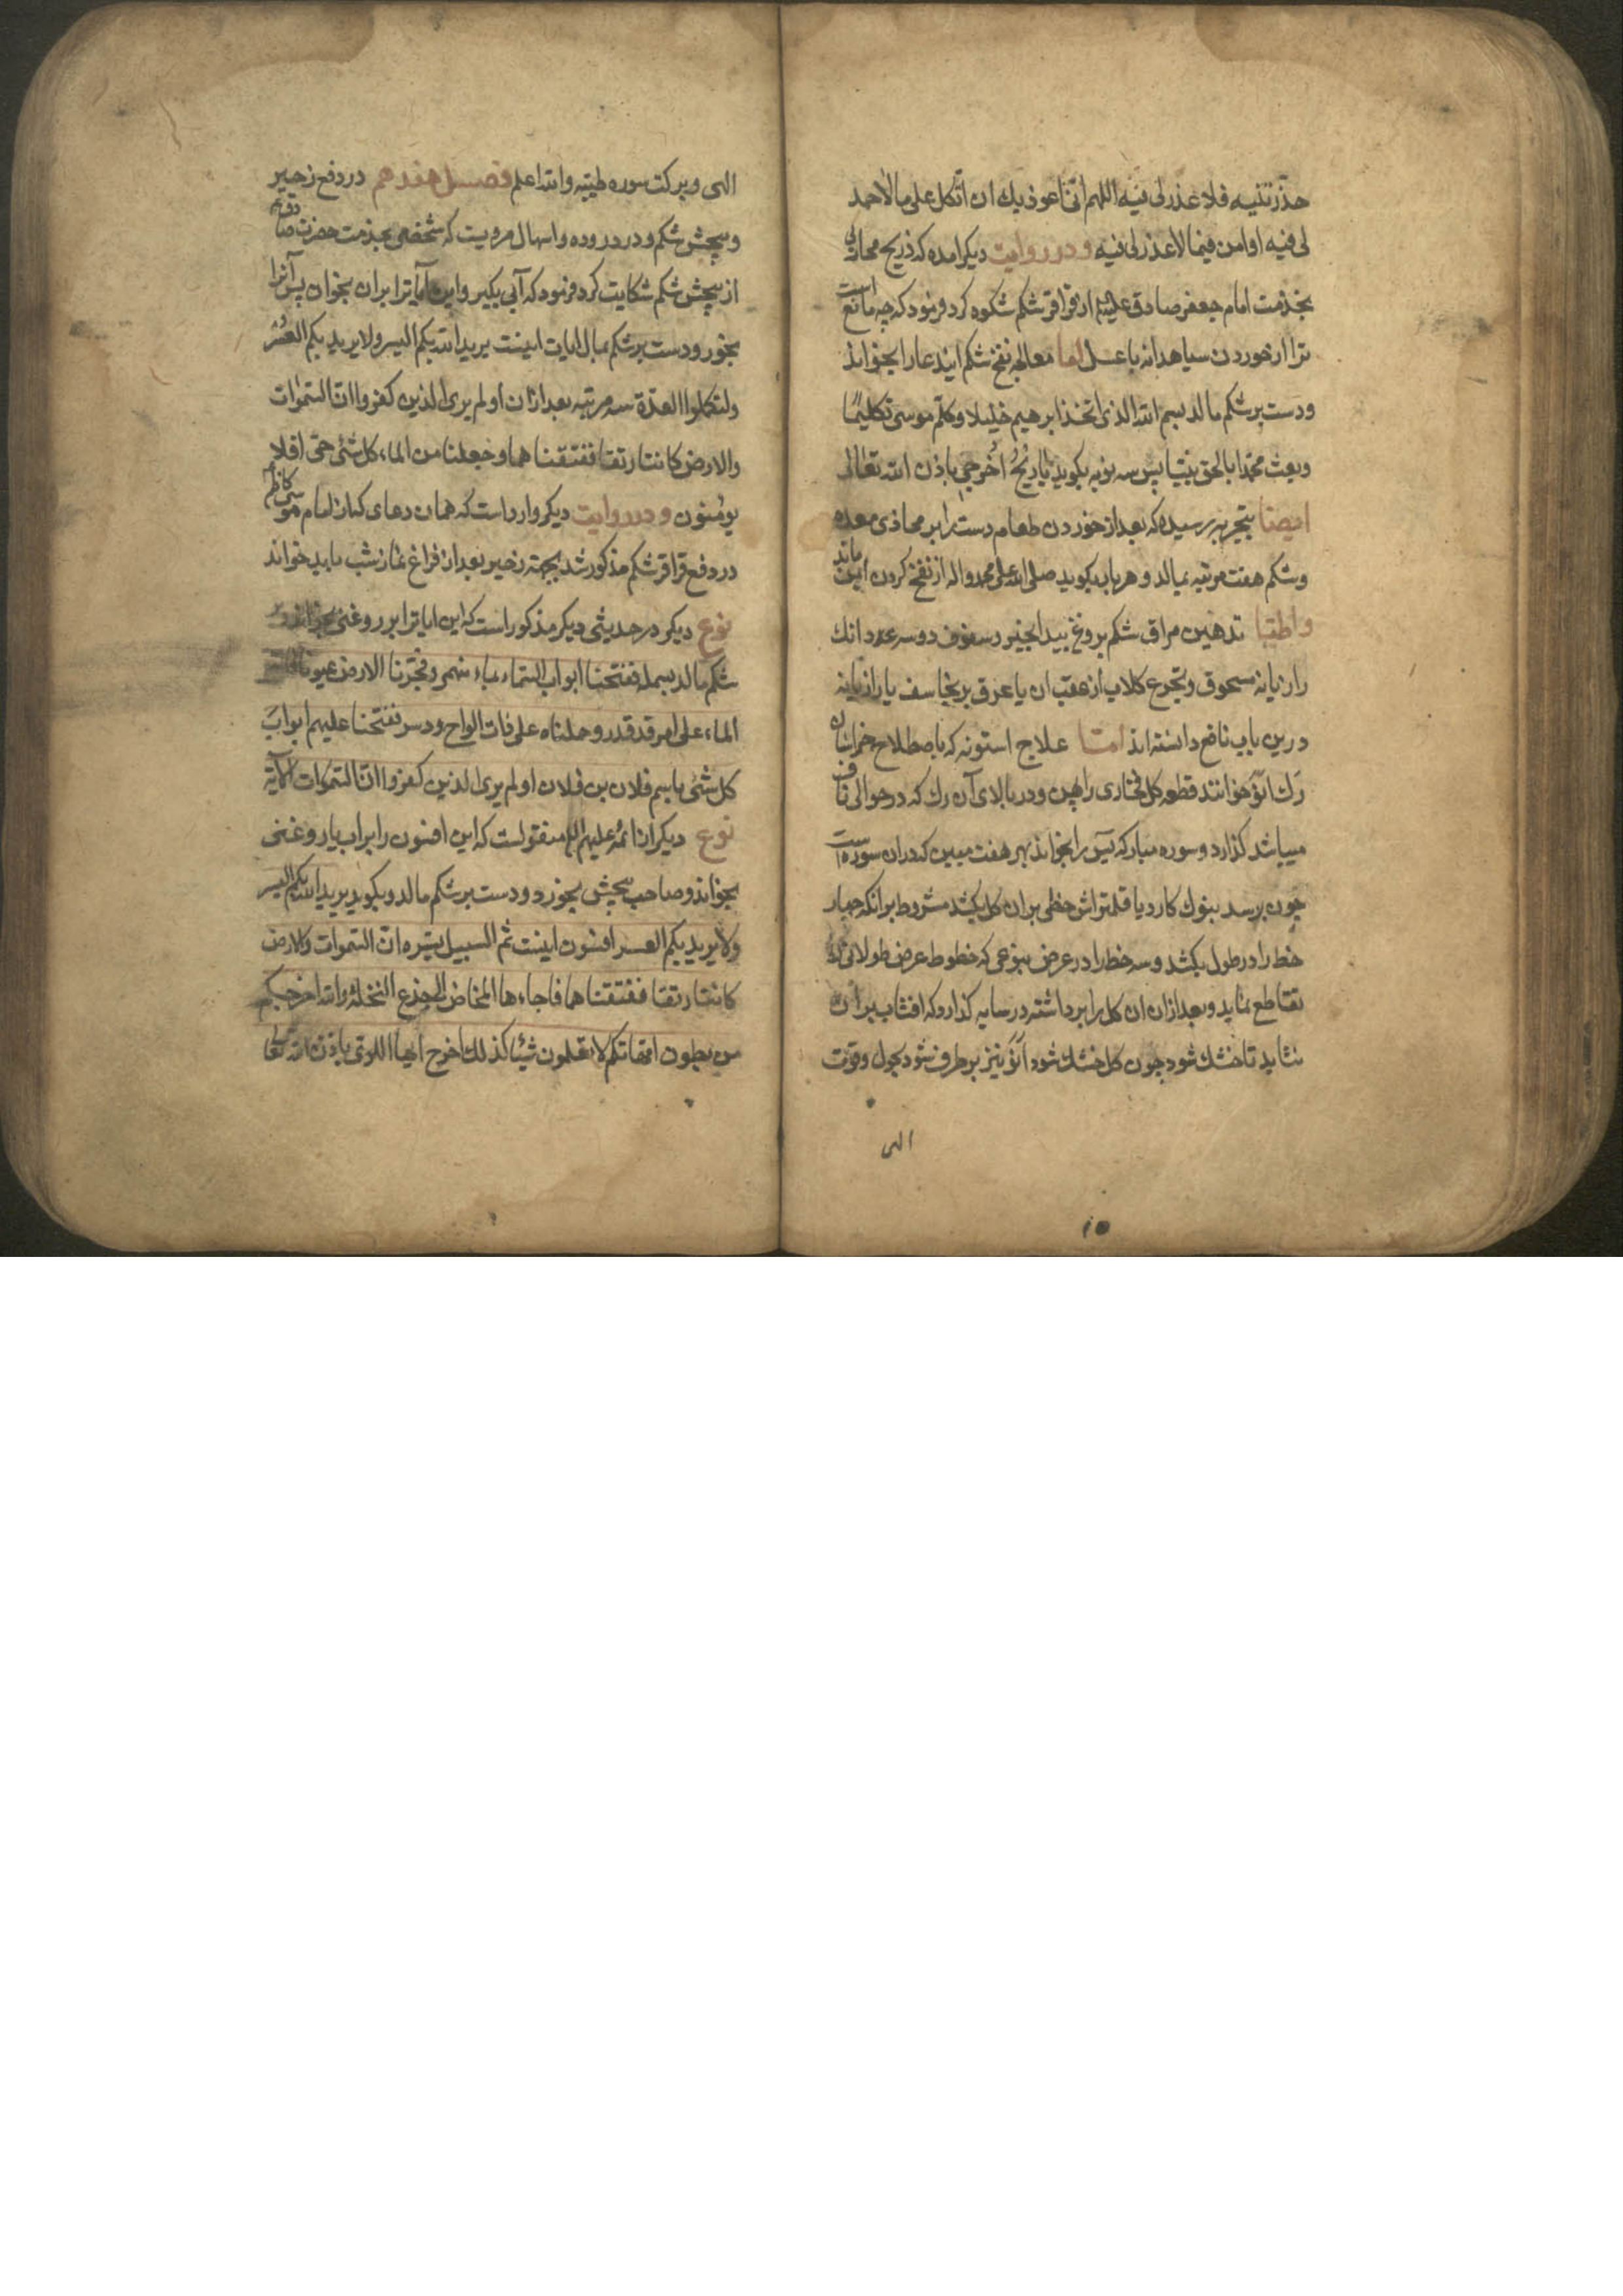 حذّرتنیه فلا عذر لی فیه اللهم انّی اعوذ بك ان اتّکل علی مالا حمد
لی فیه او امن فیما لا عذر لی فیه و در روایت دیکر امده که ذریح محاربی
بخدمت امام جعفر صادق علیه‌السلم از قراقر شکم شکوه کرد فرمود که چه مانع است
ترا از خوردن سیاهدانه باعسل اما معالجه نفخ شکم ایند عا را بخواند
ودست برشکم مالد بسم الله الذی اتخذ ابرهیم خلیلا وکلّم موسی تکلیمًا
وبعث محمّدا بالحق نبیّا پس سه نوبه بکوید یا ریحُ اُخرجی باذن الله تعالی
ایضا بتجربه رسیده که بعد از خوردن طعام دست را بر محاذی معده
وشکم هفت مرتبه بمالد و هر باب بکوید صلی الله علی محمد واله از نفخ کردن ایمن ماند
واطبّا تدهین مراق شکم بروغ بید انجیر و سفوف دوسه عدد دانك
رازیانه مسحوق وتجرع کلاب از عقب ان یا عرق برنجاسف یا رازیانه
درین باب نافع دانسته اند امّا علاج استونه که باصطلاح خراسان
رَك انَوْ خوانند قطعه کل فخاری را پهن و در بالای آن رك که در حوالی ناف
میباشد کذارد وسوره مبارکه یٓس را بخواند بهر هفت مبین که دران سوره است
چون برسد بنوك کارد یا قلمتراش خطی بران کل بکشد مشروط برانکه چهار
خط را در طول بکشد وسه خط را در عرض بنوعی که خطوط عرض طولانی را
تقاطع نماید وبعد ازان ان کل را برداشته در سایه کذارد که افتاب بران
نتابد تا خشك شود چون کل خشك شود انَوْ نیز برطرف شود بحول وقوّت
الهی
۱۵
الهی وبرکت سوره طیّبه والله اعلم فصل هفدهم در دفع زحیر
وپیچش شکم و درد روده و اسهال مرویست که شخصی بخدمت حضرت صادق
از پیچش شکم شکایت کرد فرمود که آبی بکیر واین آیاترا بران بخوان پس آنرا
بخور ودست برشکم بمال ایات اینست یرید الله بکم الیسر ولا یرید بکم العُسر
ولتکملوا العدّة سه مرتبه بعد ازان او لم یری الذین کفروا انّ السّموات
والارض کانتا رتقا ففتقنا هما وجعلنا من الماء کل شئ حیّ افلا
یؤمنون و در روایت دیکر وارد است که همان دعای که از امام موسی کاظم
در دفع قراقر شکم مذکور شد بجهته زحیر بعد از فراغ نماز شب باید خواند
نوع دیکر در حدیثی دیکر مذکور است که این ایاترا بر روغنی بخواند و بر
شکم مالد بسمله ففتحنا ابواب السّماء بماء منهمر وفجّرنا الارض عیونا فالتقی
الماء علی امر قد قدر وحملناه علی ذات الواح ودسر ففتحنا علیهم ابواب
کل شئ باسم فلان بن فلان او لم یری الذین کفروا انّ السّموات الآیه
نوع دیکر از ائمه علیهم السلم منقولست که این افسون را بر اب یا روغنی
بخواند وصاحب پیچش بخورد ودست برشکم مالد وبکوید یرید الله بکم الیسر
ولا یرید بکم العسر افسون اینست ثم السبیل یسّره انّ السّموات والارض
کانتا رتقا ففتقنا هما فاجاءها المخاض الی جذع النخلة والله اخرجکم
من بطون امّهاتکم لا تعلمون شیئا کذلك اخرج ایها اللوی باذن الله تعالی